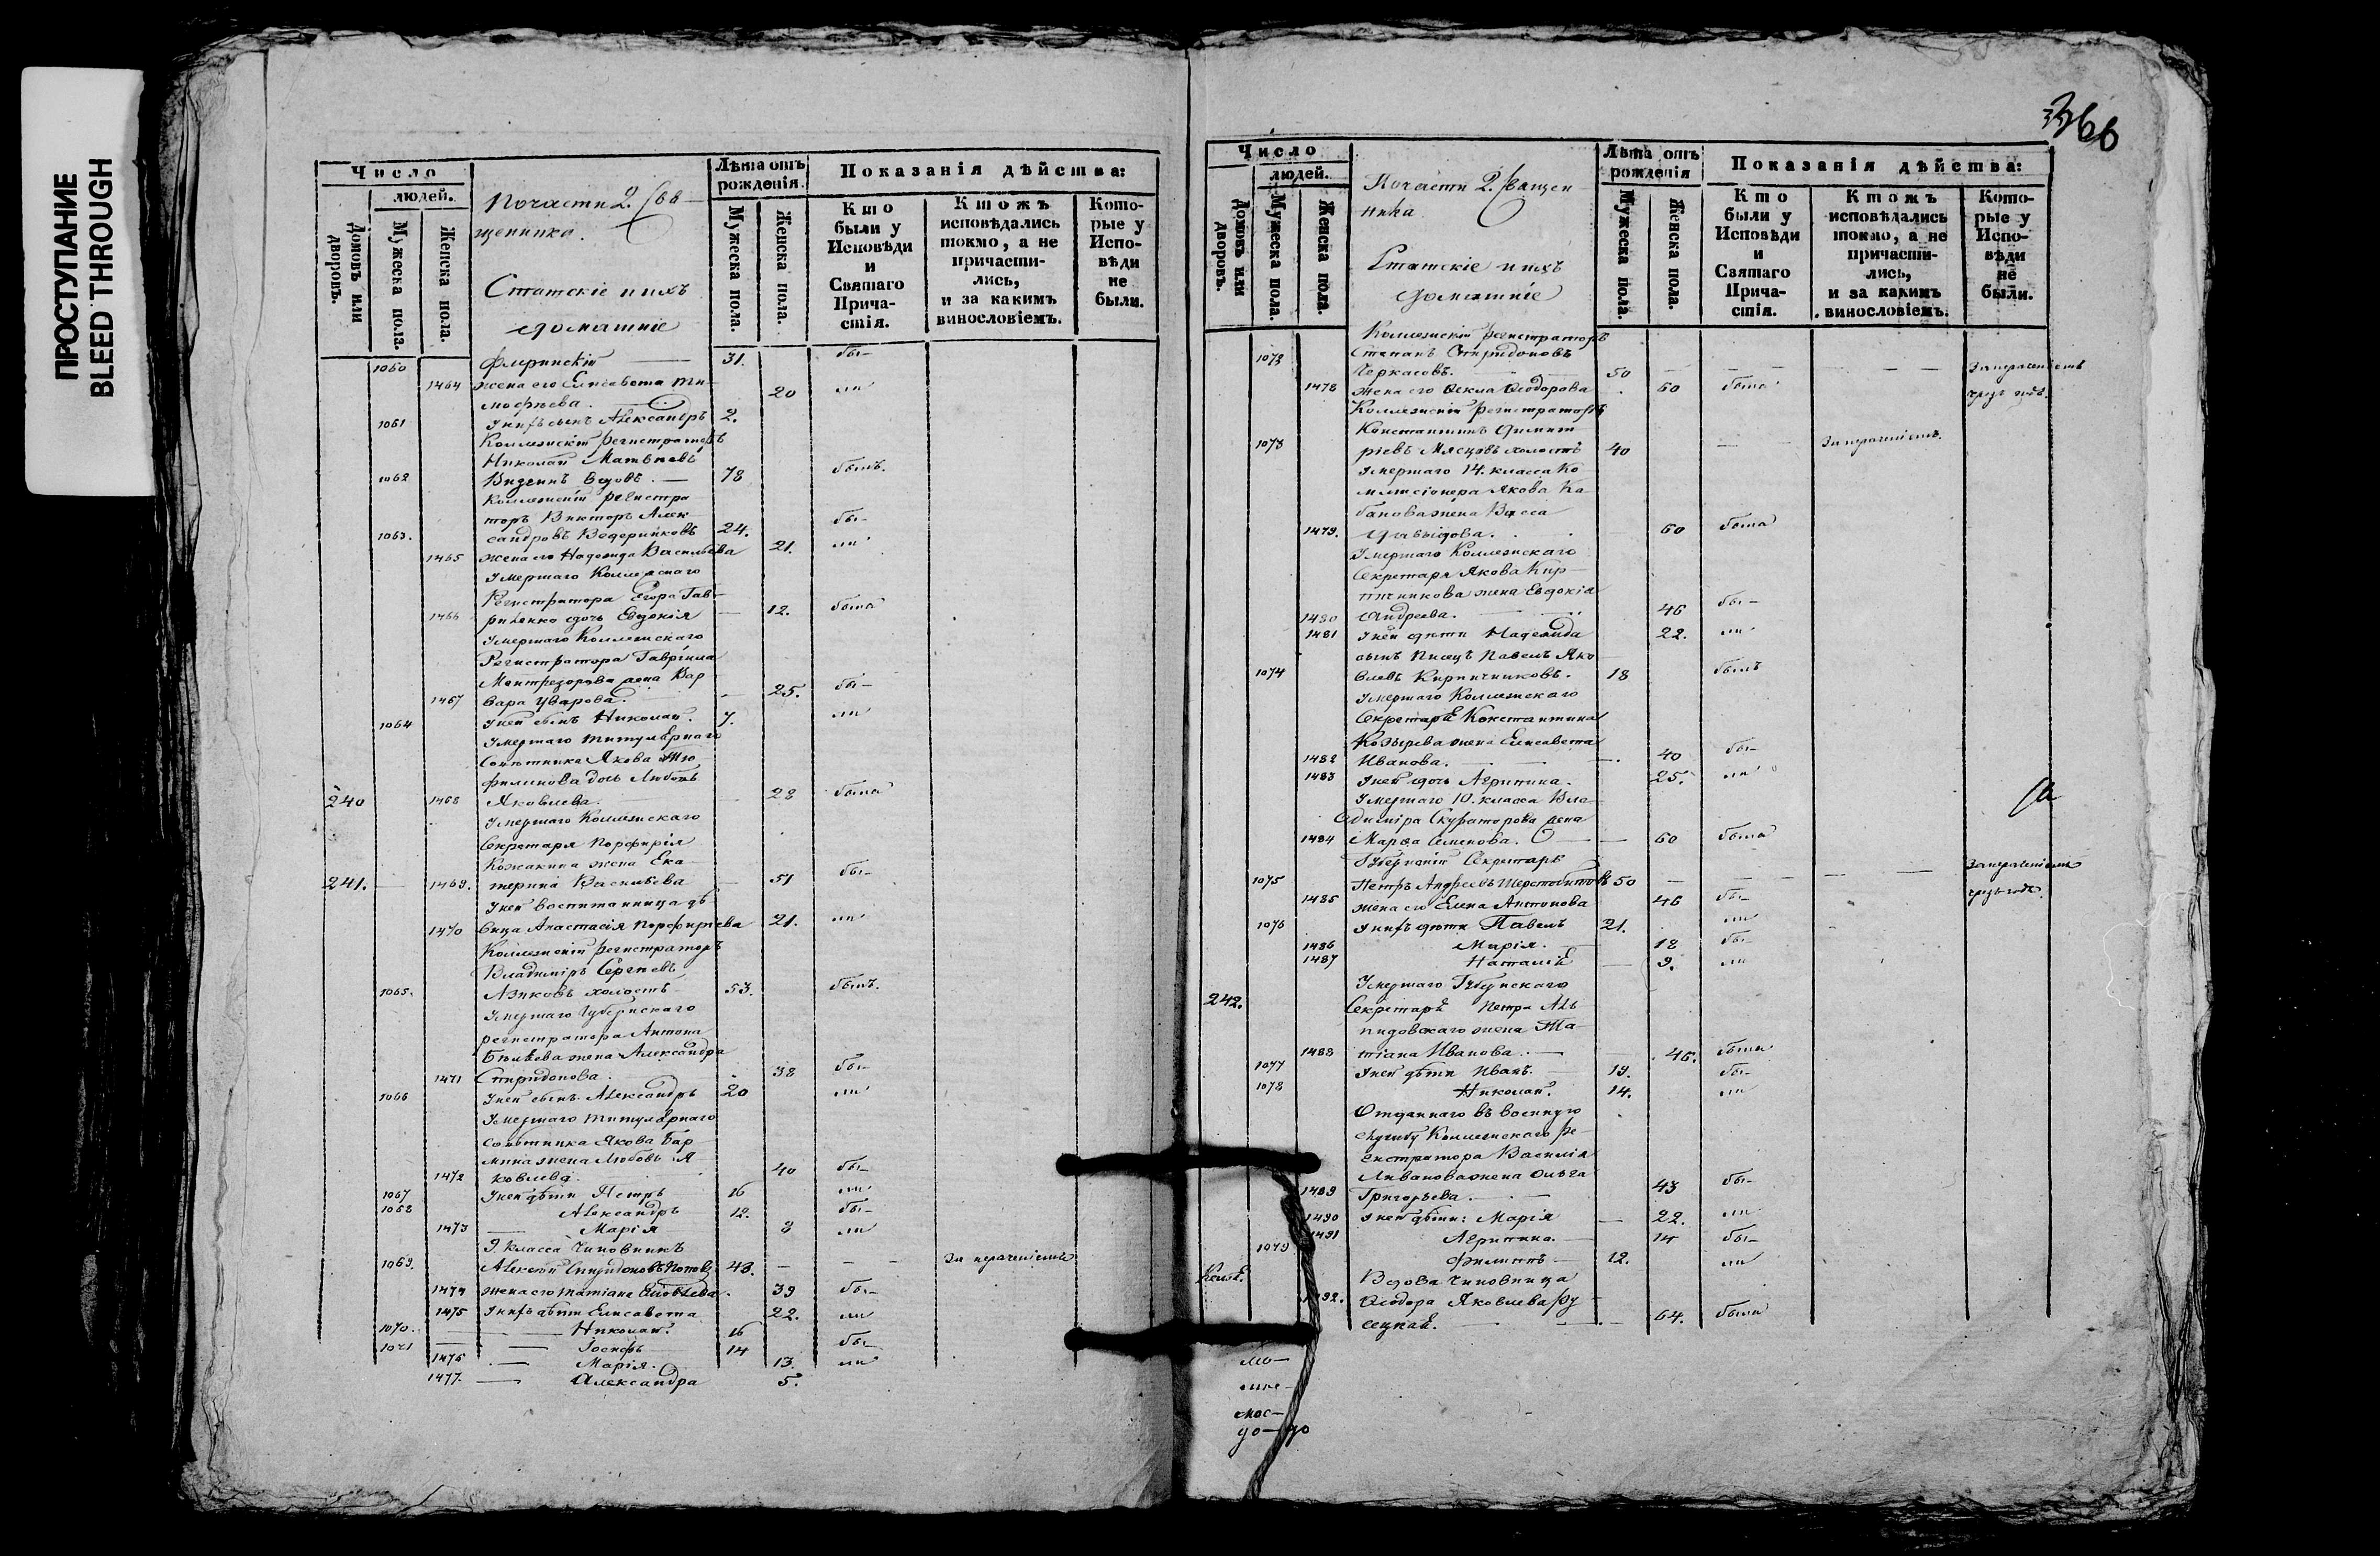 ПРОСТУПАНИЕ
BLEED THROUGH
Число
людей.
Домовъ или дворовъ.
Мужеска пола.
Женска пола.
По части 2. Свя-
щенника.
Статскіе и ихъ
домашніе
Лѣта отъ рожденія.
Мужеска пола.
Женска пола.
Показанія дѣйства:
Кто были у Исповѣди и Святаго Прича-стія.
Ктожъ исповѣдались токмо, а не причасти-лись, и за какимъ винословіемъ.
Кото-рые у Испо-вѣди не были.
1060 31. бы-
1464 жена его Елисавета Ти-
мофѣева. 20 ли
1061 У нихъ сынъ Александръ 2.
Коллежскій регистраторъ
Николай Матвѣевъ
1062 вдовъ. — 78 былъ.
Коллежскій регистра
торъ Викторъ Алек-
1063. сандровъ 24. бы-
1465 жена его Надежда Васильева 21. ли
Умершаго Коллежскаго
Регистратора Егора Гав-
1466 риленко дочь Евдокія — 12. была
Умершаго Коллежскаго
Регистратора Гавріила
жена Вар
1467 вара Уварова. — 25. бы-
1064 У ней сынъ Николай. 7. ли
Умершаго титулярнаго
Совѣтника Якова
дочь Любовь
240 1468 Яковлева. 28 была
Умершаго Коллежскаго
Секретаря Порфирія
Кожакина жена Ека-
241. 1469. терина Васильева 51 бы-
У ней воспитанница дѣ-
1470 вица Анастасія Порфирьева 21. ли
Коллежскій регистраторъ
Владиміръ Сергѣевъ
1065. Азиковъ холостъ 53. былъ.
Умершаго Губернскаго
регистратора Антона
Бѣляева жена Александра
1471 Спиридонова. 38 бы-
1066 У ней сынъ Александръ 20 ли
Умершаго титулярнаго
совѣтника Якова Бар-
мина жена Любовь Я-
1472 ковлева. 40 бы-
1067 У ней дѣти Петръ 16 ли
1068 Александръ 12. бы-
1473 — Марія 8 ли
9. класса чиновникъ
1069. Алексѣй Спиридоновъ 43. — — — За нераченіемъ
1474 жена его Татіана 39 бы-
1475 У нихъ дѣти Елисавета 22. ли
1070. — Николай. 16
1071 — Іосифъ 14 бы-
1476 — Марія. 13. ли
1477. — Александра 5.
366
Число
людей.
Домовъ или дворовъ.
Мужеска пола.
Женска пола.
По части 2. Священ-
ника
Статскіе и ихъ
домашніе
Лѣта отъ рожденія
Мужеска пола.
Женска пола.
Показанія дѣйства:
Кто были у Исповѣди и Святаго Прича-стія.
Ктожъ исповѣдались токмо, а не причасти-лись, и за какимъ винословіемъ.
Кото-рые у Испо-вѣди не были.
Коллежскій регистраторъ
1072 Степанъ Спиридоновъ
Черкасовъ. 50 — — — За нераченіемъ
1478 жена его Ѳекла Ѳеодорова 60 была
Коллежскій регистраторъ
Константинъ Димит
1073 ріевъ Мясцовъ холостъ 40 — — За нераченіемъ.
Умершаго 14. класса Ко
миссіонера Якова Ка
банова жена Васса
1479. Давыдова. 60 была
Умершаго Коллежскаго
Секретаря Якова Кир-
пичникова жена Евдокія
1480 Андреева. 46 бы-
1481 У ней дѣти Надежда 22. ли
сынъ писецъ Павелъ Яко
1074 влевъ Кирпичниковъ. 18 былъ
Умершаго Коллежскаго
Секретаря Константина
Козырева жена Елисавета
1482 Иванова. 40 бы-
1483 У ней дочь Агрипина. 25. ли
Умершаго 10. класса Вла-
диміра Скураторова жена
1484 Марѳа Семенова. 60 была
Губернскій Секретарь
1075 Петръ Андреевъ Шерстобитовъ 50 — — — — За нераченіемъ
1485 жена его Елена Антонова 46 бы-
1076 У нихъ дѣти Павелъ 21. ли
1486 Марія. 18 бы-
1487 Наталія 9. ли
Умершаго Губернскаго
242. Секретаря Петра
жена Та-
1488 тіана Иванова. 46. была
1077 У ней дѣти Иванъ. 19. бы-
1078 Николай. 14. ли
Отданнаго въ военную
службу Коллежскаго ре-
гистратора Василія
Ливанова жена Ольга
1489 Григорьева. 43 бы-
1490 У ней дѣти: Марія 22. ли
1491 Агрипина. 14 бы-
1079 Филиппъ 12. ли
Вдова чиновница
1492. Ѳеодора Яковлева Ру
сецкая. 64. была